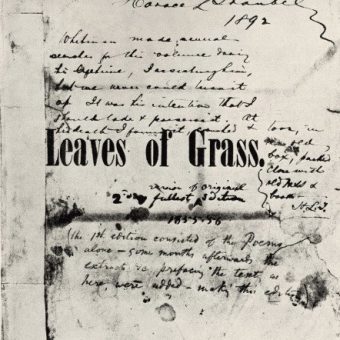 Horace L Traubel
1892
Whitman made several
searches for this volume during
his lifetime, I assisting him,
but we never could
it up It was his intention that I
should take & possess it. At
his death I found it &
torn, in
box, packed
close with
old &
books
H.L.T.
Leaves of Grass.
2nd
fullest Edition
1855-56
(the 1st edition consisted of the Poems
alone – some months afterward the
extracts &c prefacing the text, as
here, were added – making this edition